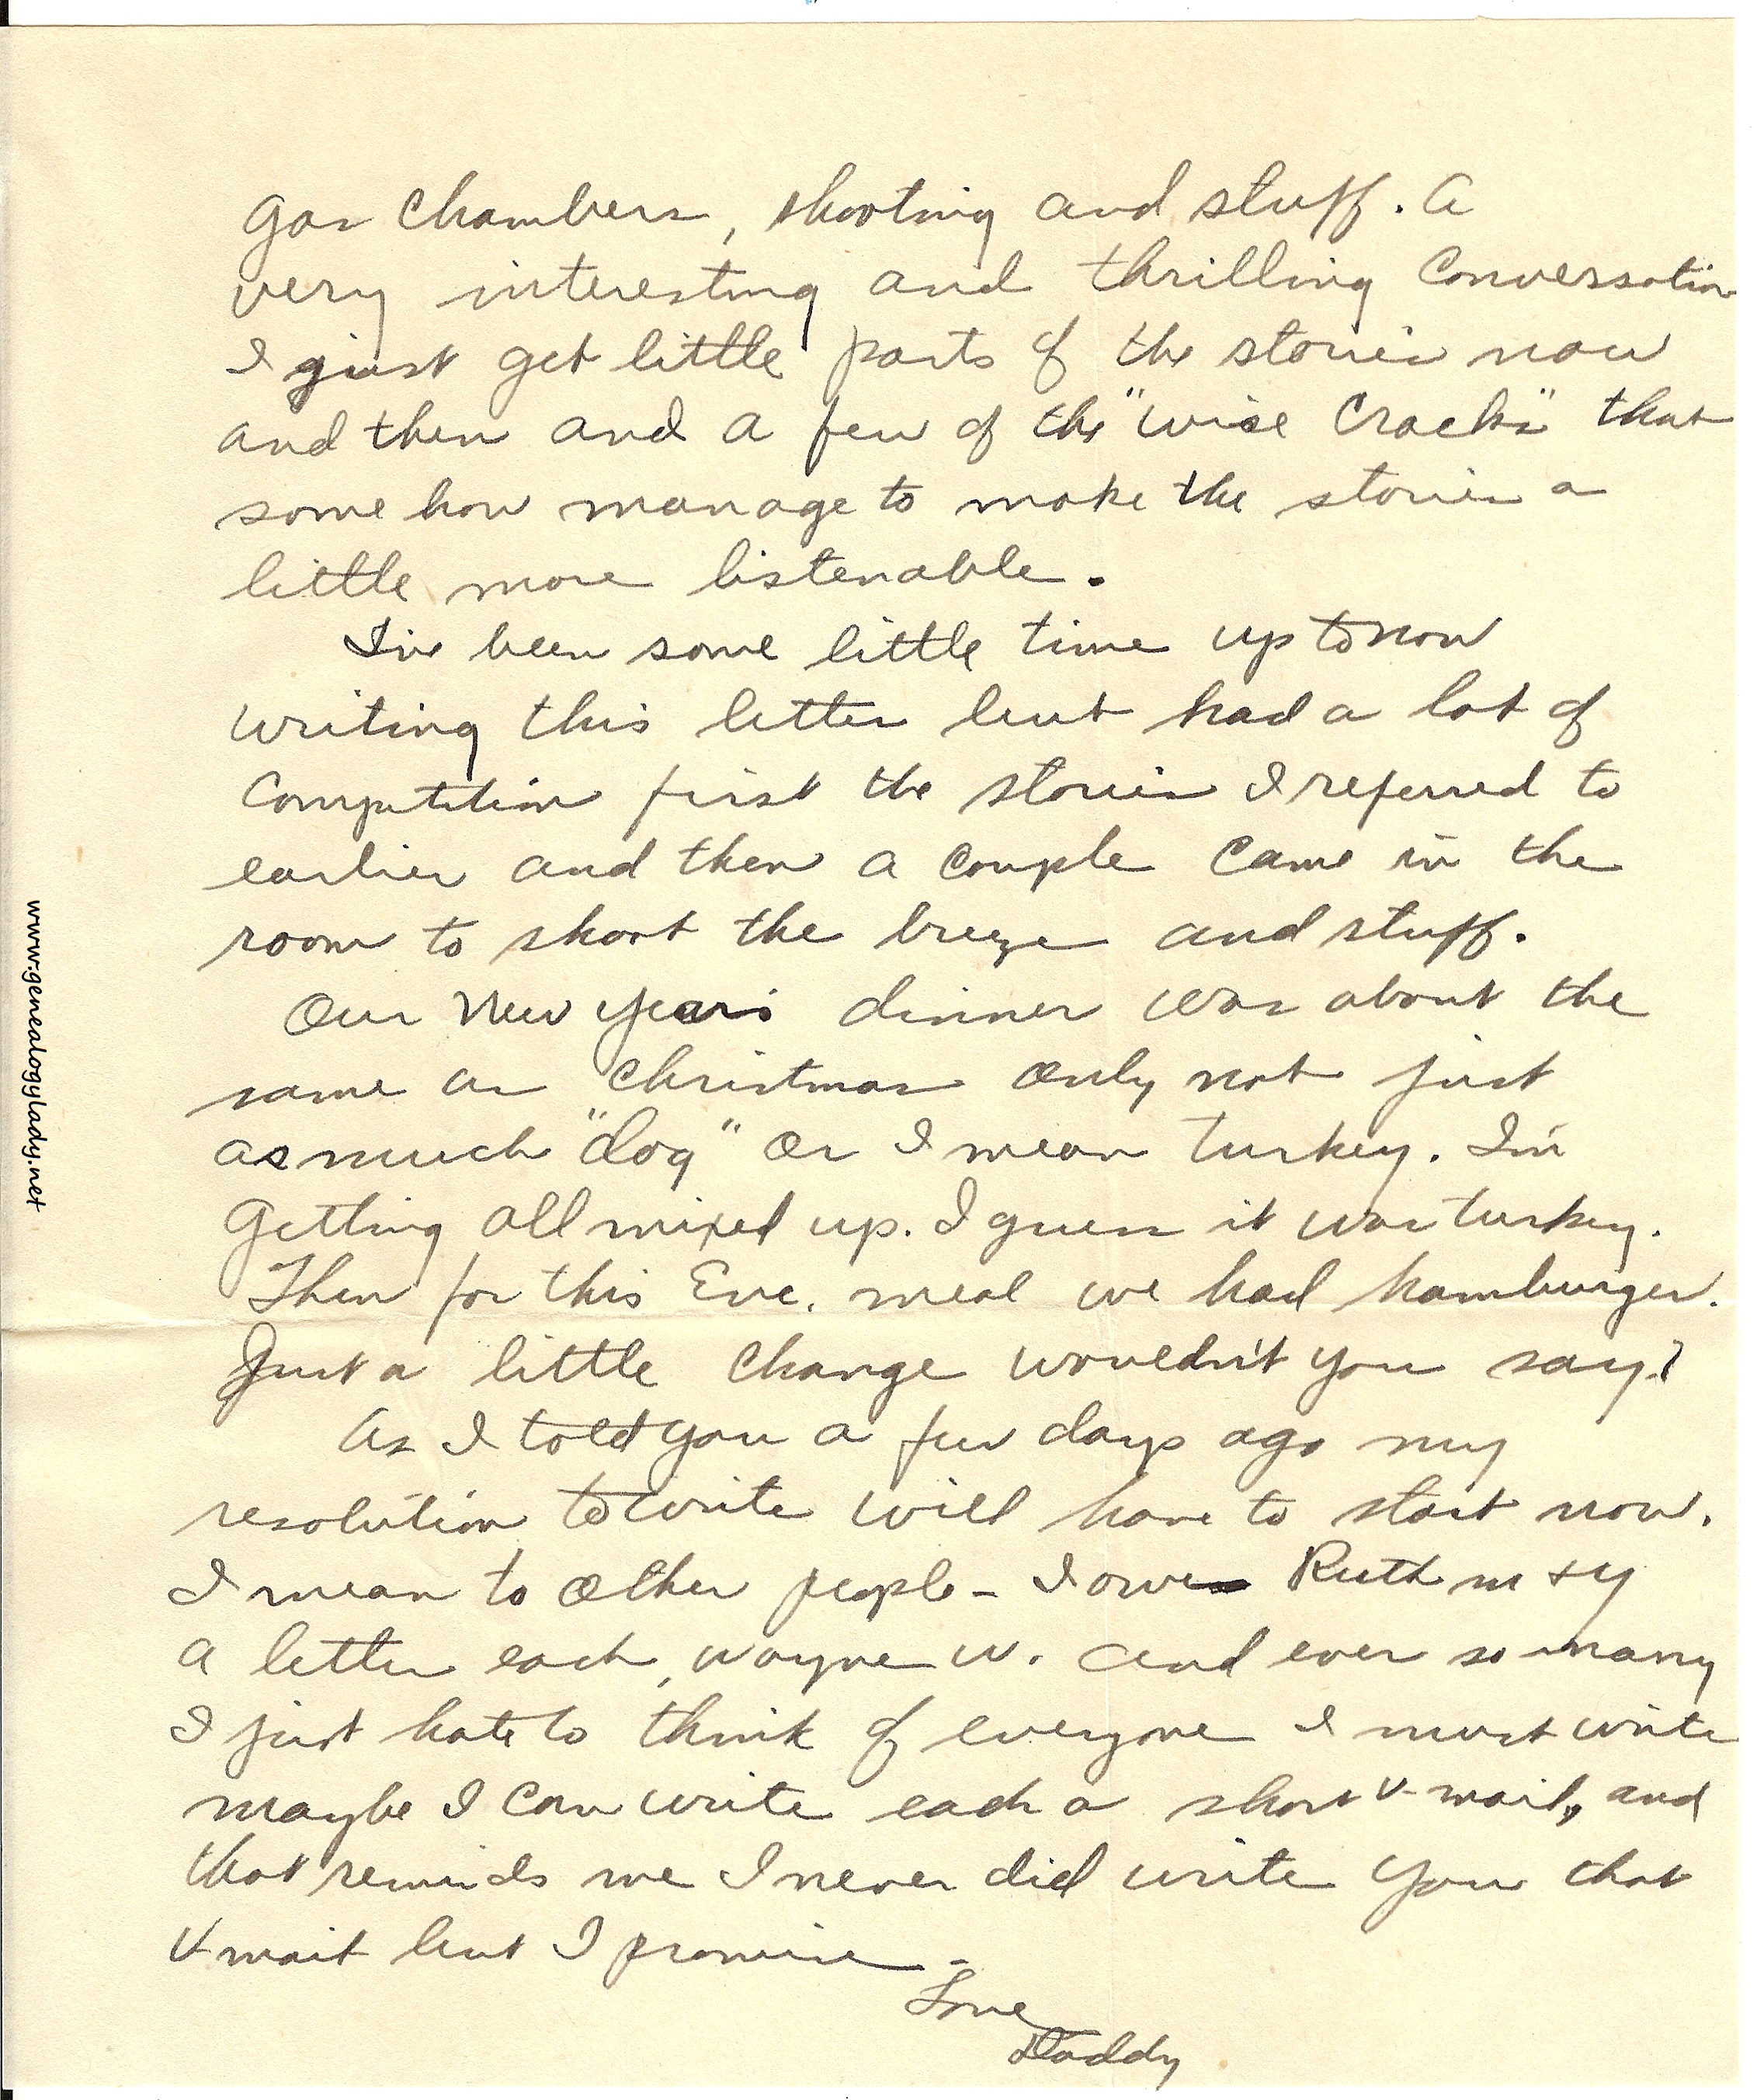 gas chambers, shooting and stuff. A
very interesting and thrilling conversation
I just get little parts of the stories now
and then and a few of the "wise cracks" that
some how manage to make the stories a
little more listenable.
I've been some little time up to now
writing this letter but had a lot of
competition first the stories I referred to
earlier and then a couple came in the
room to shoot the breeze and stuff.
Our New Year's dinner was about the
same as Christmas only not just
as much "dog" or I mean turkey. I'm
getting all mixed up. I guess it was turkey.
Then for this Eve. meal we had hamburger.
Just a little change wouldn't you say?
As I told you a few days ago my
resolution to write will have to start now.
I mean to other people - I owe Ruth M + Y
a letter each, Wayne W. and ever so many
I just hate to think of everyone I must write
maybe I can write each a short V-mail, and
that reminds me I never did write you that
V-mail but I promise.
Love
Daddy
www.genealogylady.net